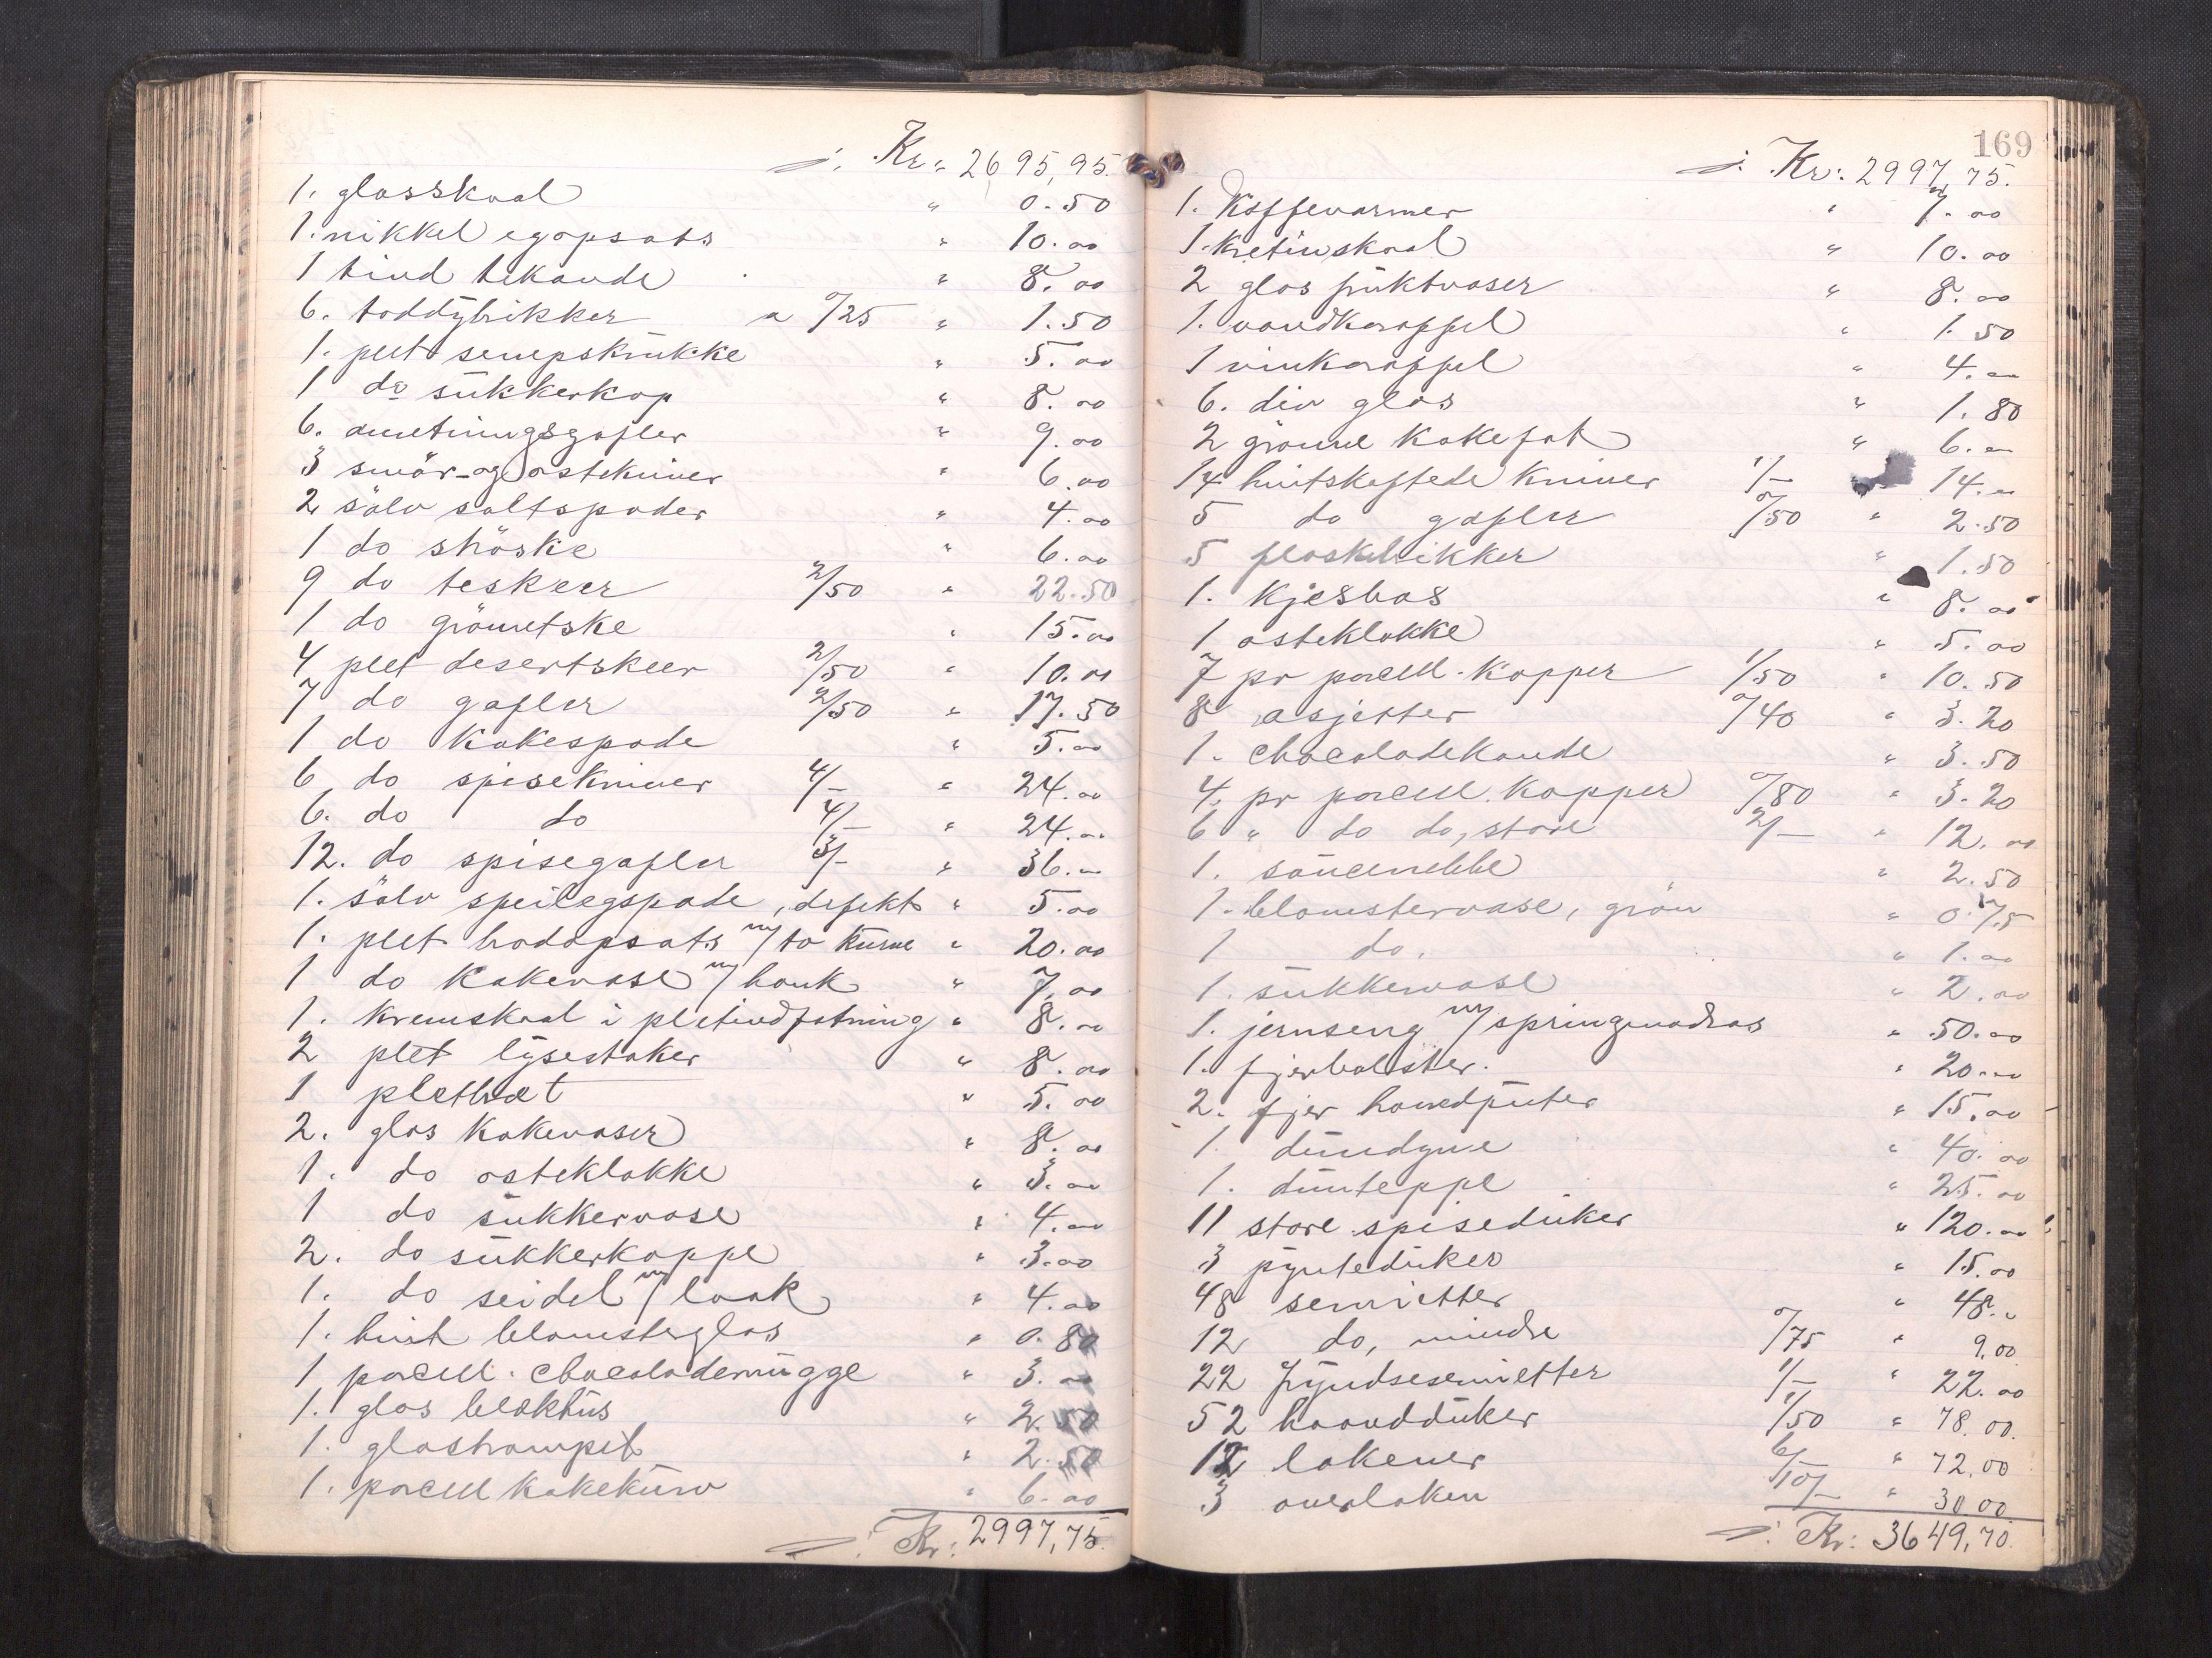 ./. Kr. 2695,95.
1. glasskaal " 0.50
1. nikkel egopsats " 10.00
1 tind tekande " 8.00
6. toddybrikker a 0/25 " 1.50
1. plet senepskrukke " 5.00
1 do sukkerkop " 8.00
6. anretningsgafler " 9.00
3 smör- og ostekniver " 6.00
2 sölv saltspader " 4.00
1 do ströske " 6.00
9 do teskeer 2/50 " 22.50
1 do grönnetske " 15.00
4 plet desertskeer 2/50 " 10.00
7 do gafler 2/50 " 17.50
1 do kakespade " 5.00
6 do spisekniver 4/- " 24.00
6. do do 4/- " 24.00
12. do spisegafler 3/- " 36.00
1. sölv speilegspade, defekt " 5.00
1. plet bodopsats m/ to kurve " 20.00
1 do kakevase m/ hank " 7.00
1. kremskaal i pletindfatning " 8.00
2 plet lysestaker " 8.00
1 pletbræt " 5.00
2. glas kakevaser " 8.00
1. do osteklokke " 3.00
1 do sukkervase " 4.00
2. do sukkerkoppe " 3.00
1. do seidel m/ laak " 4.00
1. hvit blomsterglas " 0.80
1 porcell. chocolademugge " 3.00
1. glas blækhus " 2.50
1. glastrompet " 2.50
1. porcell kakekurv " 6.00
./. Kr: 2997,75.
169
./. Kr: 2997,75.
1. Koffevarmer " 7.00
1. Kretinskaal " 10.00
2 glas fruktvaser " 8.00
1. vandkaraffel " 1.50
1 vinkaraffel " 4.00
6. div glas " 1.80
2 grönne kakefat " 6.00
14 hvitskaftede kniver 1/- " 14.00
5 do gafler 0/50 " 2.50
5 flaskebrikker " 1.50
1. kjesbas " 8.00
1 osteklokke " 5.00
7 pr porcell. kopper 1/50 " 10.50
8 asjetter 0/40 " 3.20
1. chocoladekande " 3.50
4. pr porcell. kopper 0/80 " 3.20
6 " do do, store 2/- " 12.00
1. saucenebbe " 2.50
1. blomstervase, grön " 0.75
1 do. " 1.00
1. sukkervase " 2.00
1. jernseng m/ springmadras " 50.00
1. fjerbolster. " 20.00
2. fjer hovedputer " 15.00
1 dundyne " 40.00
1. dunteppe " 25.00
11 store spiseduker " 120.00
3 pynteduker " 15.00
48 servietter " 48.00
12 do, mindre 0/75 " 9.00
22 fryndseservietter 1/- " 22.00
52 haandduker 1/50 " 78.00
12 lakener 6/- " 72.00
3 overlaken 10/- " 30.00
./. Kr: 3649,70.